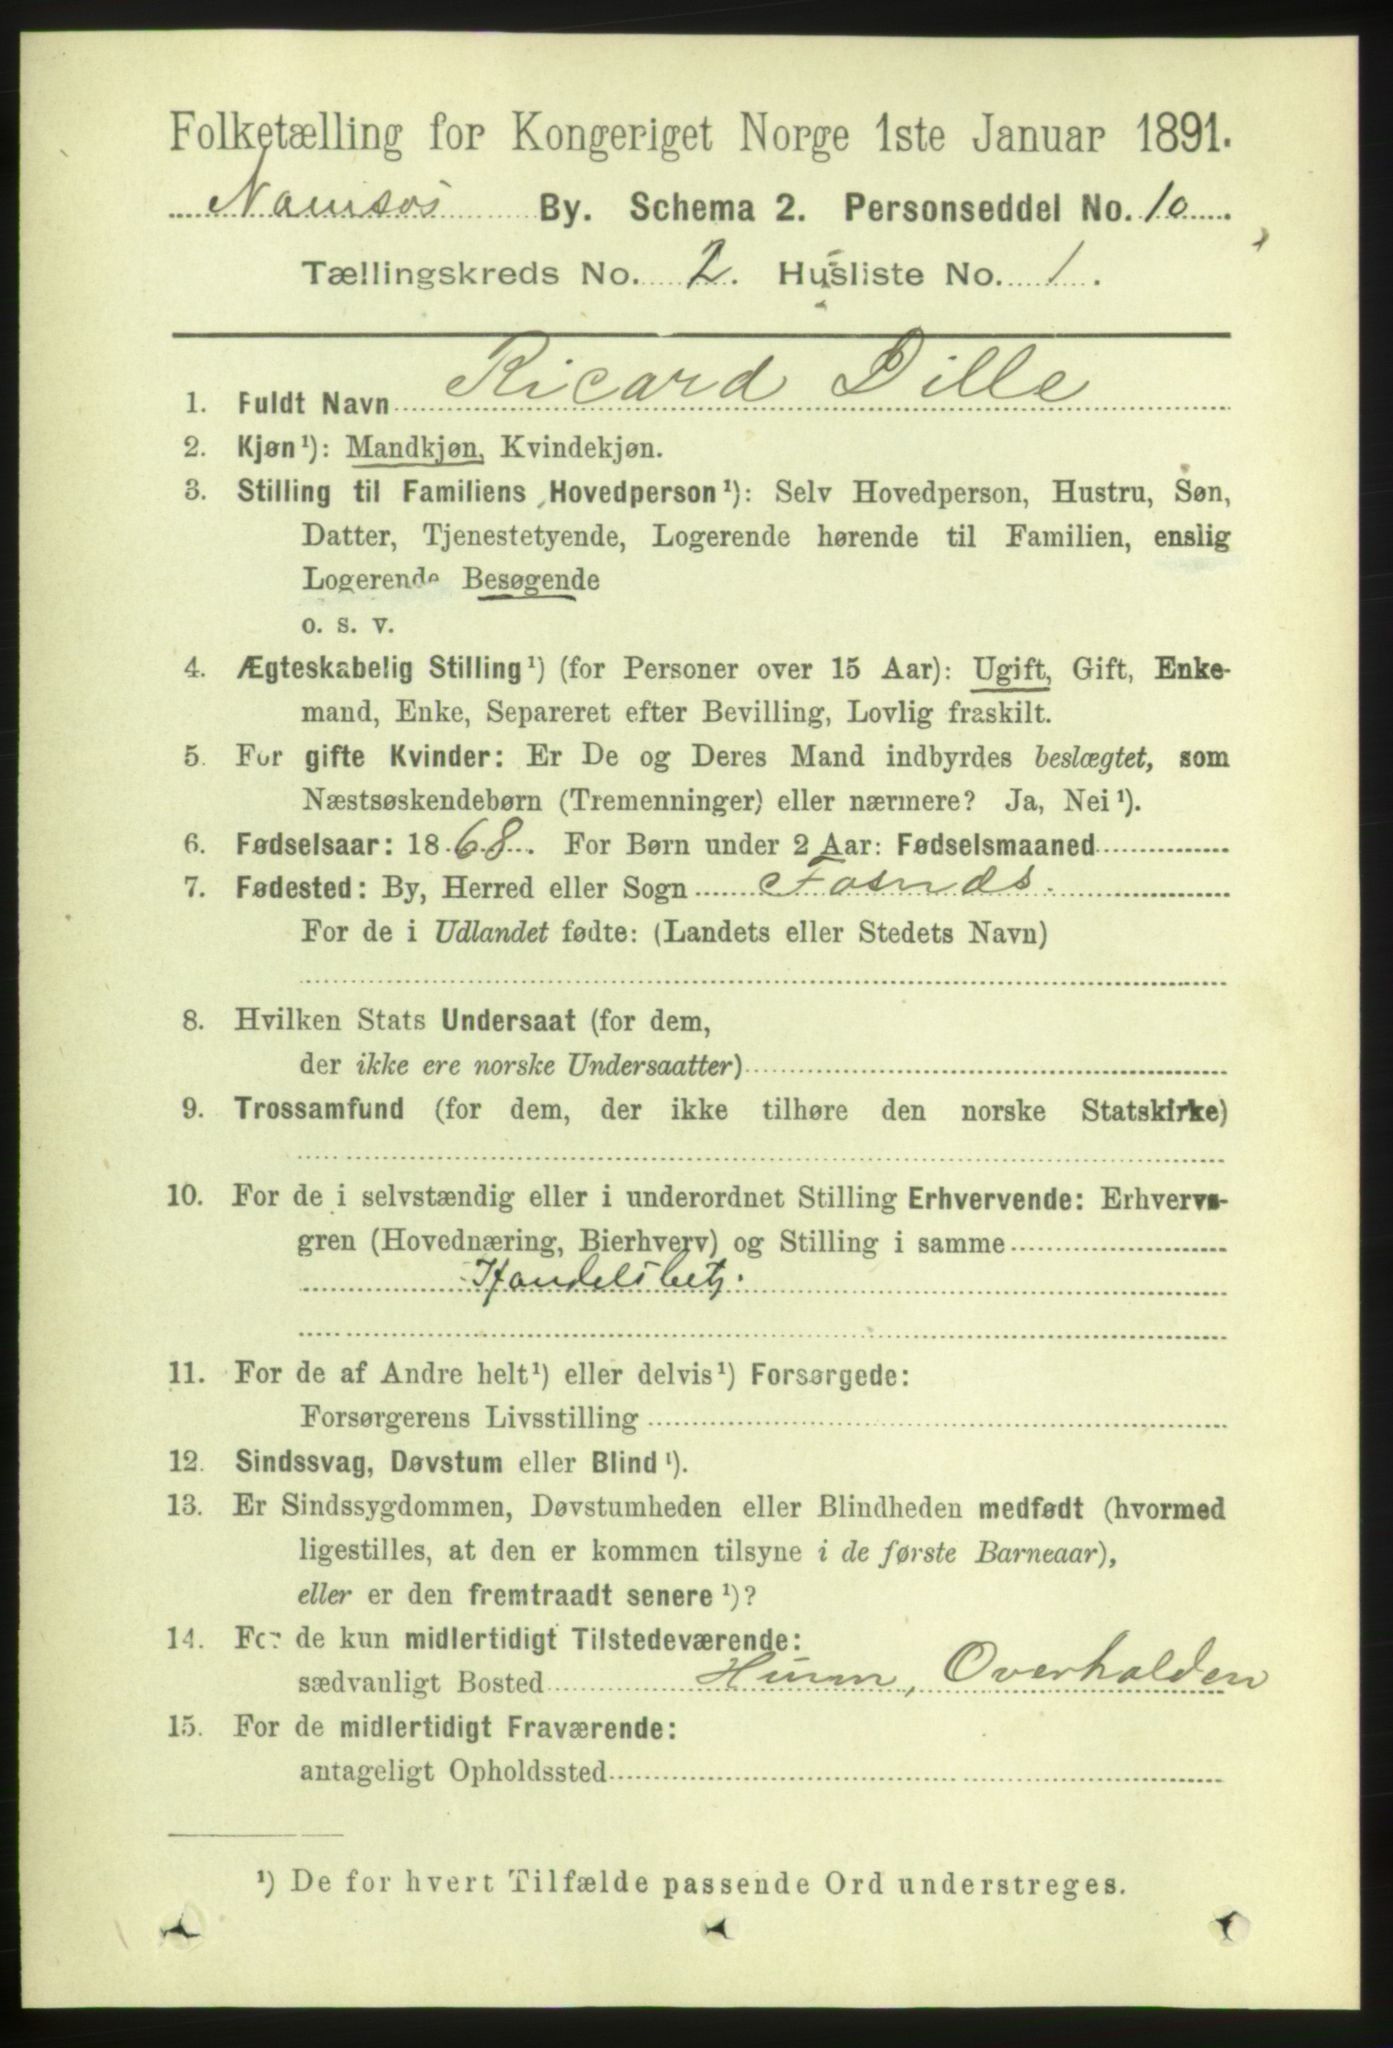 Folketælling for Kongeriget Norge 1ste Januar 1891.
Namsos By. Schema 2. Personseddel No. 10.
Tællingskreds No. 2. Husliste No. 1.
1. Fuldt Navn Ricard Dille
2. Kjøn¹): Mandkjøn, Kvindekjøn.
3. Stilling til Familiens Hovedperson¹): Selv Hovedperson, Hustru, Søn,
Datter, Tjenestetyende, Logerende hørende til Familien, enslig
Logerende Besøgende
o. s. v.
4. Ægteskabelig Stilling¹) (for Personer over 15 Aar): Ugift, Gift, Enke-
mand, Enke, Separeret efter Bevilling, Lovlig fraskilt.
5. For gifte Kvinder: Er De og Deres Mand indbyrdes beslægtet, som
Næstsøskendebørn (Tremenninger) eller nærmere? Ja, Nei¹).
6. Fødselsaar: 1868. For Børn under 2 Aar: Fødselsmaaned
7. Fødested: By, Herred eller Sogn Fosnæs.
For de i Udlandet fødte: (Landets eller Stedets Navn)
8. Hvilken Stats Undersaat (for dem,
der ikke ere norske Undersaatter)
9. Trossamfund (for dem, der ikke tilhøre den norske Statskirke)
10. For de i selvstændig eller i underordnet Stilling Erhvervende: Erhvervs-
gren (Hovednæring, Bierhverv) og Stilling i samme
Handelsbetj.
11. For de af Andre helt¹) eller delvis¹) Forsørgede:
Forsørgerens Livsstilling
12. Sindssvag, Døvstum eller Blind¹).
13. Er Sindssygdommen, Døvstumheden eller Blindheden medfødt (hvormed
ligestilles, at den er kommen tilsyne i de første Barneaar),
eller er den fremtraadt senere¹)?
14. For de kun midlertidigt Tilstedeværende:
sædvanligt Bosted Hunn, Overhalden
15. For de midlertidigt Fraværende:
antageligt Opholdssted
¹) De for hvert Tilfælde passende Ord understreges.